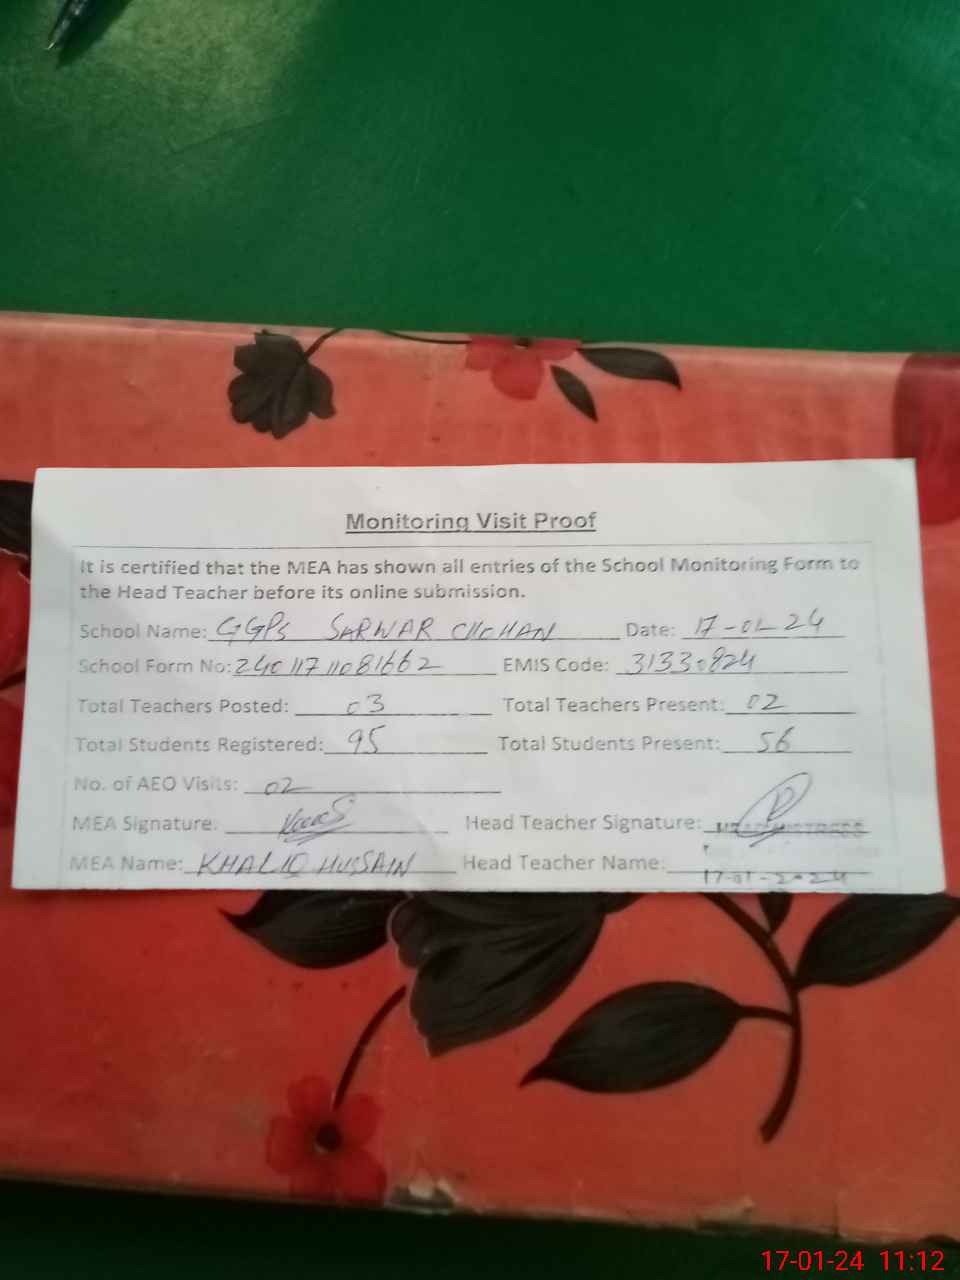 Monitoring Visit Proof
It is certified that the MEA has shown all entries of the School Monitoring Form to
the Head Teacher before its online submission.
School Name: GGPS SARWAR CHOHAN Date: 17-01-24
School Form No: 24011711081662 EMIS Code: 31330824
Total Teachers Posted: 03 Total Teachers Present: 02
Total Students Registered: 95 Total Students Present: 56
No. of AEO Visits: 02
MEA Signature: Head Teacher Signature: HEAD MISTRESS
MEA Name: KHALIQ HUSSAIN Head Teacher Name:
17-01-2024
17-01-24 11:12